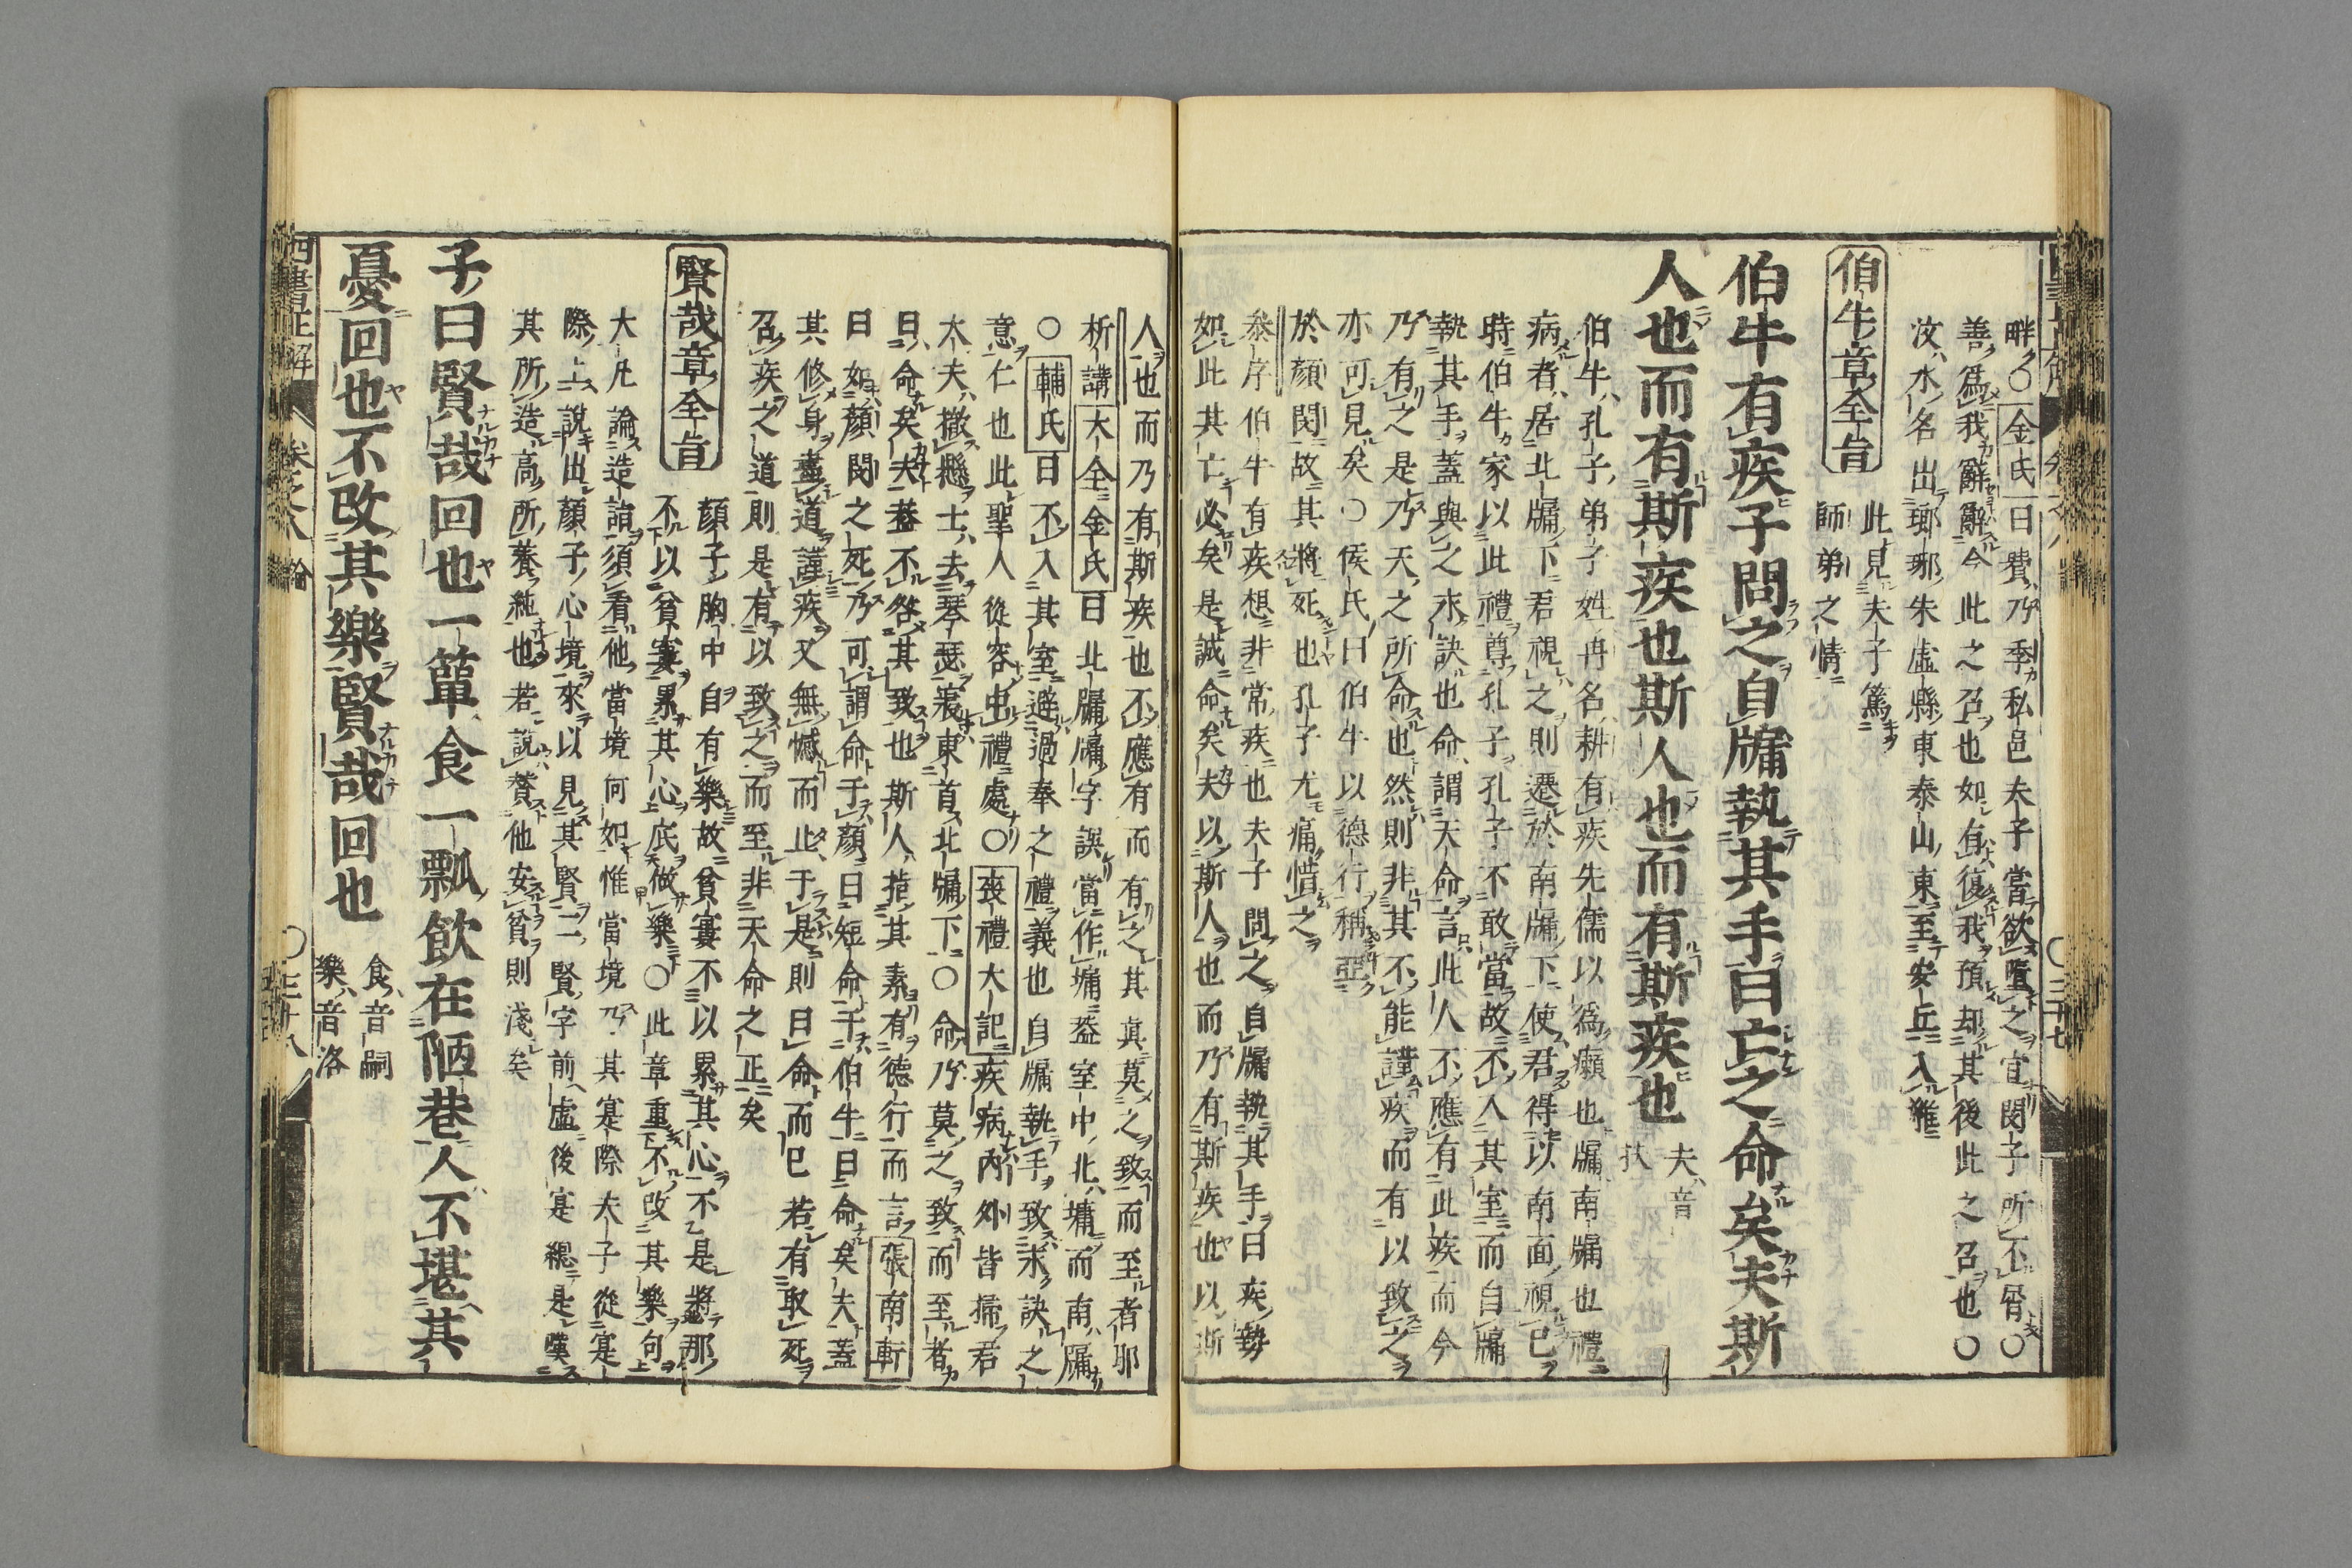 畔〇金氏曰費乃季私邑夫子當欲墮之宜閔子所不屑〇
善爲我辭辭今此之召也如有復我預却其後此之召也〇
汶水名出瑯琊朱虛縣東泰山東至安丘入濰
伯牛章全旨
此見夫子篤
師弟之情
伯牛有疾子問之自牖執其手曰亡之命矣夫斯
人也而有斯疾也斯人也而有斯疾也
夫音
扶
伯牛孔子弟子姓冉名耕有疾先儒以爲癩也牖南牖也禮
病者居北牖下君視之則遷於南牖下使君得以南面視己
時伯牛家以此禮尊孔子孔子不敢當故不入其室而自牖
執其手蓋與之永訣也命謂天命言此人不應有此疾而今
乃有之是乃天之所命也然則非其不能謹疾而有以致之
亦可見矣〇侯氏曰伯牛以德行稱亞
於顏閔故其將死也孔子尤痛惜之
叅序伯牛有疾想非常疾也夫子問之自牖執其手曰疾勢
如此其亡必矣是誠命矣夫以斯人也而乃有斯疾也以斯
人也而乃有斯疾也不應有而有之其真莫之致而至者耶
析講大全金氏曰北牖牖字誤當作墉蓋室中北墉而南牖
〇輔氏曰不入其室避過奉之禮義也自牖執手致永訣之
意仁也此聖人從容中禮處〇喪禮大記疾病內外皆掃君
大夫徹懸士去琴瑟寢東首北牖下〇命乃莫之致而至者
曰命矣夫蓋不咎其致也斯人指其素有德行而言張南軒
曰如顏閔之死乃可謂命于顏曰短命于伯牛曰命矣夫蓋
其修身盡道謹疾又無憾而止于是則曰命而已若有取死
召疾之道則是有以致之而至非天命之正矣
賢哉章全旨
顏子胸中自有樂故貧窶不以累其心不是將那
不以貧窶累其心底做樂〇此章重不改其樂句
大凡論造詣須看他當境何如惟當境乃其寔際夫子從寔
際上說出顏子心境來以見其賢二賢字前虛後寔總是嘆
其所造高所養純也若說贊他安貧則淺矣
子曰賢哉回也一簞食一瓢飲在陋巷人不堪其
憂回也不改其樂賢哉回也
食音嗣
樂音洛
四書正解 卷之八 論 〇三十八